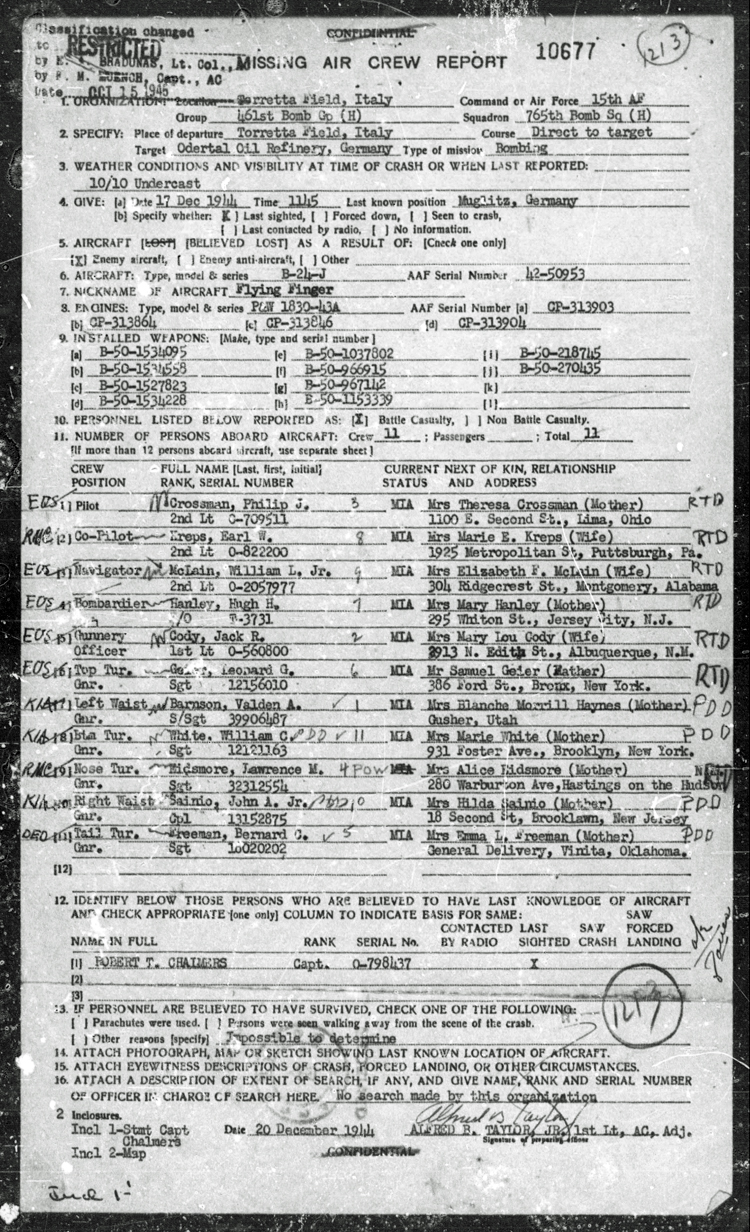 Classification changed
CONFIDENTIAL
to RESTRICTED
by E. BRADUNAS, Lt. Col.,
MISSING AIR CREW REPORT 10677
1213
by F. M. MUENCH, Capt., AC
Date OCT 15 1946
1. ORGANIZATION: Location Torretta Field, Italy Command or Air Force 15th AF
Group 461st Bomb Gp (H) Squadron 765th Bomb Sq (H)
2. SPECIFY: Place of departure Torretta Field, Italy Course Direct to target
Target Odertal Oil Refinery, Germany Type of mission Bombing
3. WEATHER CONDITIONS AND VISIBILITY AT TIME OF CRASH OR WHEN LAST REPORTED:
10/10 Undercast
4. GIVE: [a] Date 17 Dec 1944 Time 1145 Last known position Muglitz, Germany
[b] Specify whether: [X] Last sighted, [ ] Forced down, [ ] Seen to crash,
[ ] Last contacted by radio, [ ] No information.
5. AIRCRAFT [LOST] [BELIEVED LOST] AS A RESULT OF: [Check one only]
[X] Enemy aircraft, [ ] Enemy anti-aircraft, [ ] Other
6. AIRCRAFT: Type, model & series B-24-J AAF Serial Number 42-50953
7. NICKNAME OF AIRCRAFT Flying Finger
8. ENGINES: Type, model & series P&W 1830-43A AAF Serial Number [a] CP-313903
[b] CP-313864 [c] CP-313846 [d] CP-313904
9. INSTALLED WEAPONS: [Make, type and serial number]
[a] B-50-1534095 [e] B-50-1037802 [i] B-50-218745
[b] B-50-1534558 [f] B-50-966915 [j] B-50-270435
[c] B-50-1527823 [g] B-50-967142 [k]
[d] B-50-1534228 [h] B-50-1153339 [l]
10. PERSONNEL LISTED BELOW REPORTED AS: [X] Battle Casualty, [ ] Non Battle Casualty.
11. NUMBER OF PERSONS ABOARD AIRCRAFT: Crew 11 ; Passengers ; Total 11
[If more than 12 persons aboard aircraft, use separate sheet]
CREW FULL NAME [Last, first, initial] CURRENT NEXT OF KIN, RELATIONSHIP
POSITION RANK, SERIAL NUMBER STATUS AND ADDRESS
EUS [1] Pilot Crossman, Philip J. 3 MIA Mrs Theresa Crossman (Mother) RTD
2nd Lt O-709511 1100 E. Second St., Lima, Ohio
RMC [2] Co-Pilot Kreps, Earl W. 8 MIA Mrs Marie E. Kreps (Wife) RTD
2nd Lt O-822200 1925 Metropolitan St, Puttsburgh, Pa.
EUS [3] Navigator McLain, William L. Jr. 9 MIA Mrs Elizabeth F. McLain (Wife) RTD
2nd Lt O-2057977 304 Ridgecrest St., Montgomery, Alabama
EUS [4] Bombardier Hanley, Hugh H. 7 MIA Mrs Mary Hanley (Mother) RTD
F/O T-3731 295 Whiton St., Jersey City, N.J.
EUS [5] Gunnery Cody, Jack R. 2 MIA Mrs Mary Lou Cody (Wife) RTD
Officer 1st Lt O-560800 2913 N. Edith St., Albuquerque, N.M.
EUS [6] Top Tur. Geier, Leonard G. 6 MIA Mr Samuel Geier (Father) RTD
Gnr. Sgt 12156010 386 Ford St., Bronx, New York.
KIA [7] Left Waist Barnson, Valden A. ✓ 1 MIA Mrs Blanche Morrill Haynes (Mother) PDD
Gnr. S/Sgt 39906487 Gusher, Utah
KIA [8] Bla Tur. White, William C. PDD ✓ 11 MIA Mrs Marie White (Mother) PDD
Gnr. Sgt 12121163 931 Foster Ave., Brooklyn, New York.
RMC [9] Nose Tur. Eidsmore, Lawrence M. 4 POW MIA Mrs Alice Eidsmore (Mother)
Gnr. Sgt 32312554 280 Warburton Ave, Hastings on the Hudson
KIA [10] Right Waist Sainio, John A. Jr. 10 MIA Mrs Hilda Sainio (Mother) PDD
Gnr. Cpl 13152875 18 Second St, Brooklawn, New Jersey
DED [11] Tail Tur. Freeman, Bernard C. ✓ 5 MIA Mrs Emma L. Freeman (Mother) PDD
Gnr. Sgt General Delivery, Vinita, Oklahoma.
[12]
12. IDENTIFY BELOW THOSE PERSONS WHO ARE BELIEVED TO HAVE LAST KNOWLEDGE OF AIRCRAFT
AND CHECK APPROPRIATE [one only] COLUMN TO INDICATE BASIS FOR SAME: SAW
CONTACTED LAST SAW FORCED
NAME IN FULL RANK SERIAL No. BY RADIO SIGHTED CRASH LANDING
[1] ROBERT T. CHALMERS Capt. O-798437 X
[2]
[3]
13. IF PERSONNEL ARE BELIEVED TO HAVE SURVIVED, CHECK ONE OF THE FOLLOWING:
[ ] Parachutes were used. [ ] Persons were seen walking away from the scene of the crash.
1213
[ ] Other reasons [specify] Impossible to determine
14. ATTACH PHOTOGRAPH, MAP OR SKETCH SHOWING LAST KNOWN LOCATION OF AIRCRAFT.
15. ATTACH EYEWITNESS DESCRIPTIONS OF CRASH, FORCED LANDING, OR OTHER CIRCUMSTANCES.
16. ATTACH A DESCRIPTION OF EXTENT OF SEARCH, IF ANY, AND GIVE NAME, RANK AND SERIAL NUMBER
OF OFFICER IN CHARGE OF SEARCH HERE. No search made by this organization
2 Inclosures. Alfred B Taylor Jr
Incl 1-Stmt Capt Date 20 December 1944 ALFRED B. TAYLOR, JR, 1st Lt, AC, Adj.
Chalmers Signature of preparing officer
Incl 2-Map CONFIDENTIAL
Incl 1-